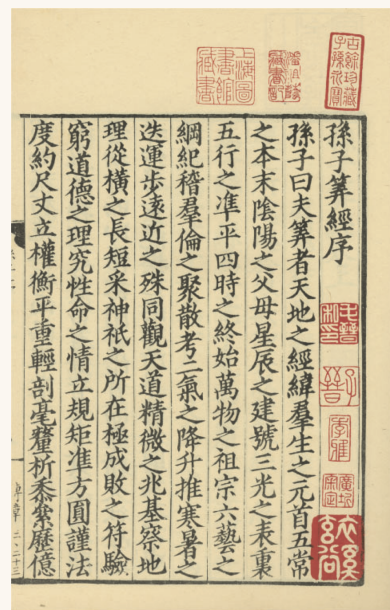 孫子筭經序
孫子曰夫筭者天地之經緯羣生之元首五常
之本末陰陽之父母星辰之建號三光之表裏
五行之准平四時之終始萬物之祖宗六藝之
綱紀稽羣倫之聚散考二氣之降升推寒暑之
迭運步遠近之殊同觀天道精微之兆基察地
理從橫之長短采神祇之所在極成敗之符驗
窮道德之理究性命之情立規矩准方圓謹法
度約尺丈立權衡平重輕剖毫釐析黍絫歷億
上海圖書館藏書